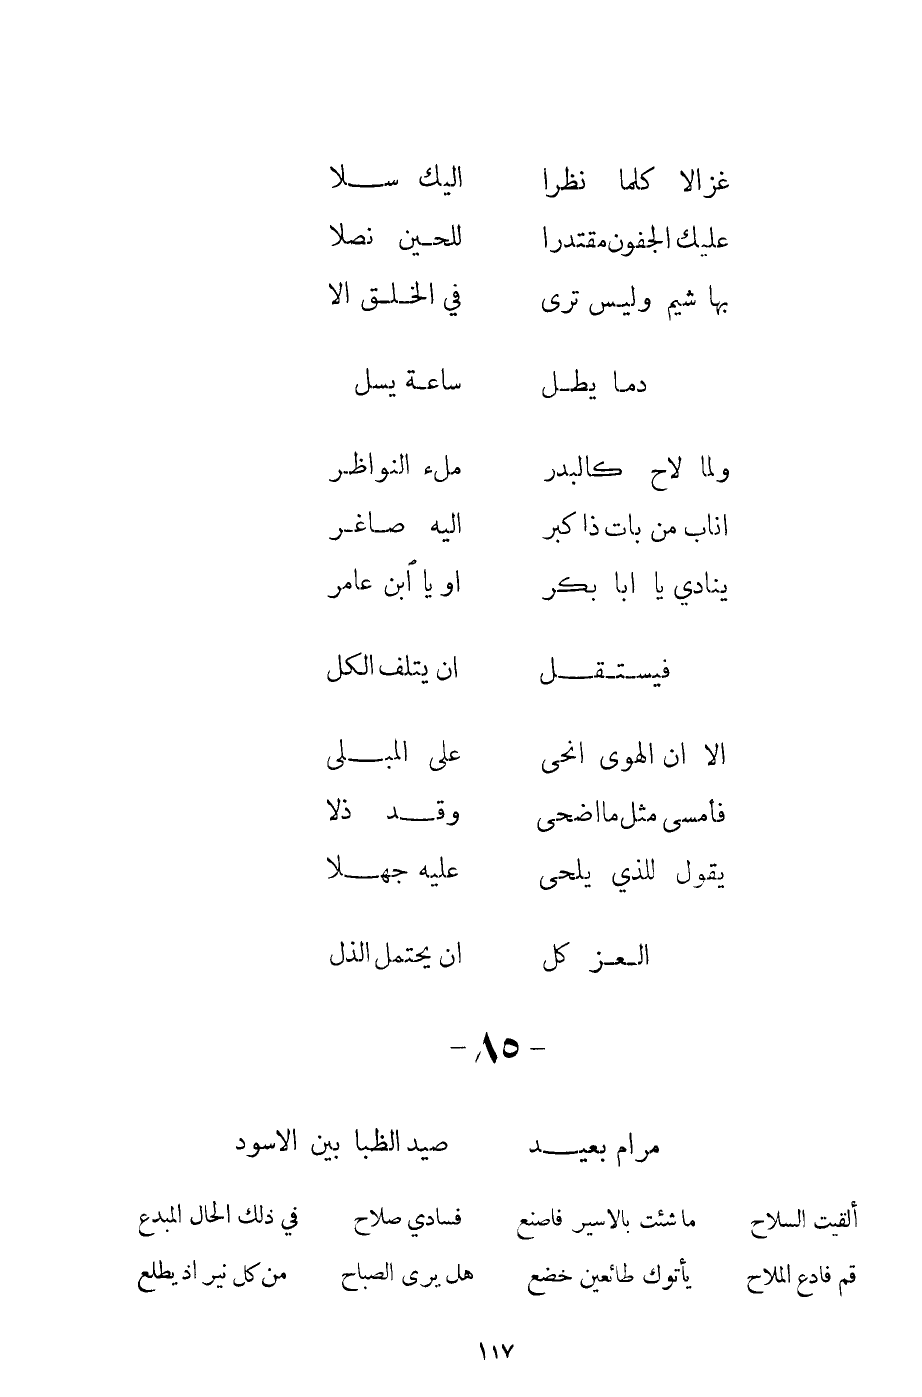 غزالا كلما نظرا اليك سلا
عليك الجفون مقتدرا للحين نصلا
بها شيم وليس ترى في الخلق الا
دما يطل ساعة يسل
ولما لاح كالبدر ملء النواظر
اناب من بات ذا كبر اليه صاغر
ينادي يا ابا بكر او يا ٱبن عامر
فيستقل ان يتلف الكل
الا ان الهوى انحى على المبلى
فأمسى مثل ما اضحى وقد ذلا
يقول للذي يلحى عليه جهلا
العز كل ان يحتمل الذل
- ٨٥ -
مرام بعيد صيد الظبا بين الاسود
ألقيت السلاح ما شئت بالاسير فاصنع فسادي صلاح في ذلك الحال المبدع
قم فادع الملاح يأتوك طائعين خضع هل يرى الصباح من كل نير اذ يطلع
١١٧